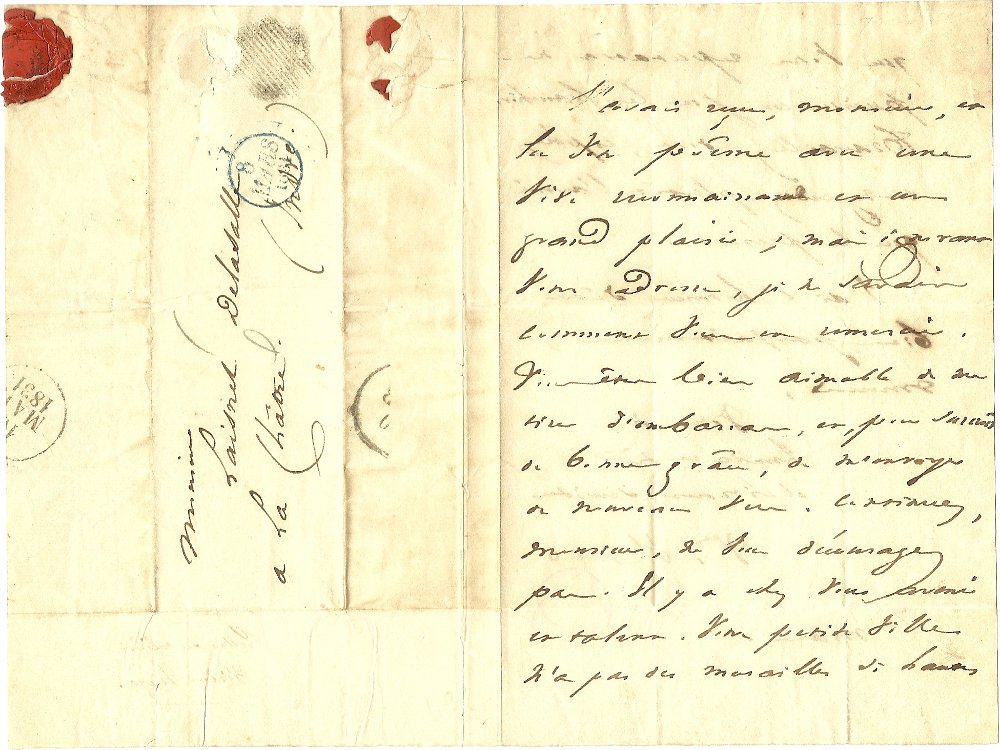 Monsieur
Laisnel Delasalle
a La Châtre.
(Indre.)
8
MARS
1831
MA
1831
J'avais reçu, monsieur, et
lu vos poëme avec une
vive reconnaissance et un
grand plaisir ; mais ignorant
votre adresse, je ne savais
comment vous en remercier.
Vous êtes bien aimable de me
tirer d'embarras, et, pour surcroit
de bonne grâce, de m'envoyer
de nouveaux vers. Continuez,
monsieur, ne vous découragez
pas. Il y a chez vous avenir
et talent. Votre petite ville
n'a pas des murailles si hautes